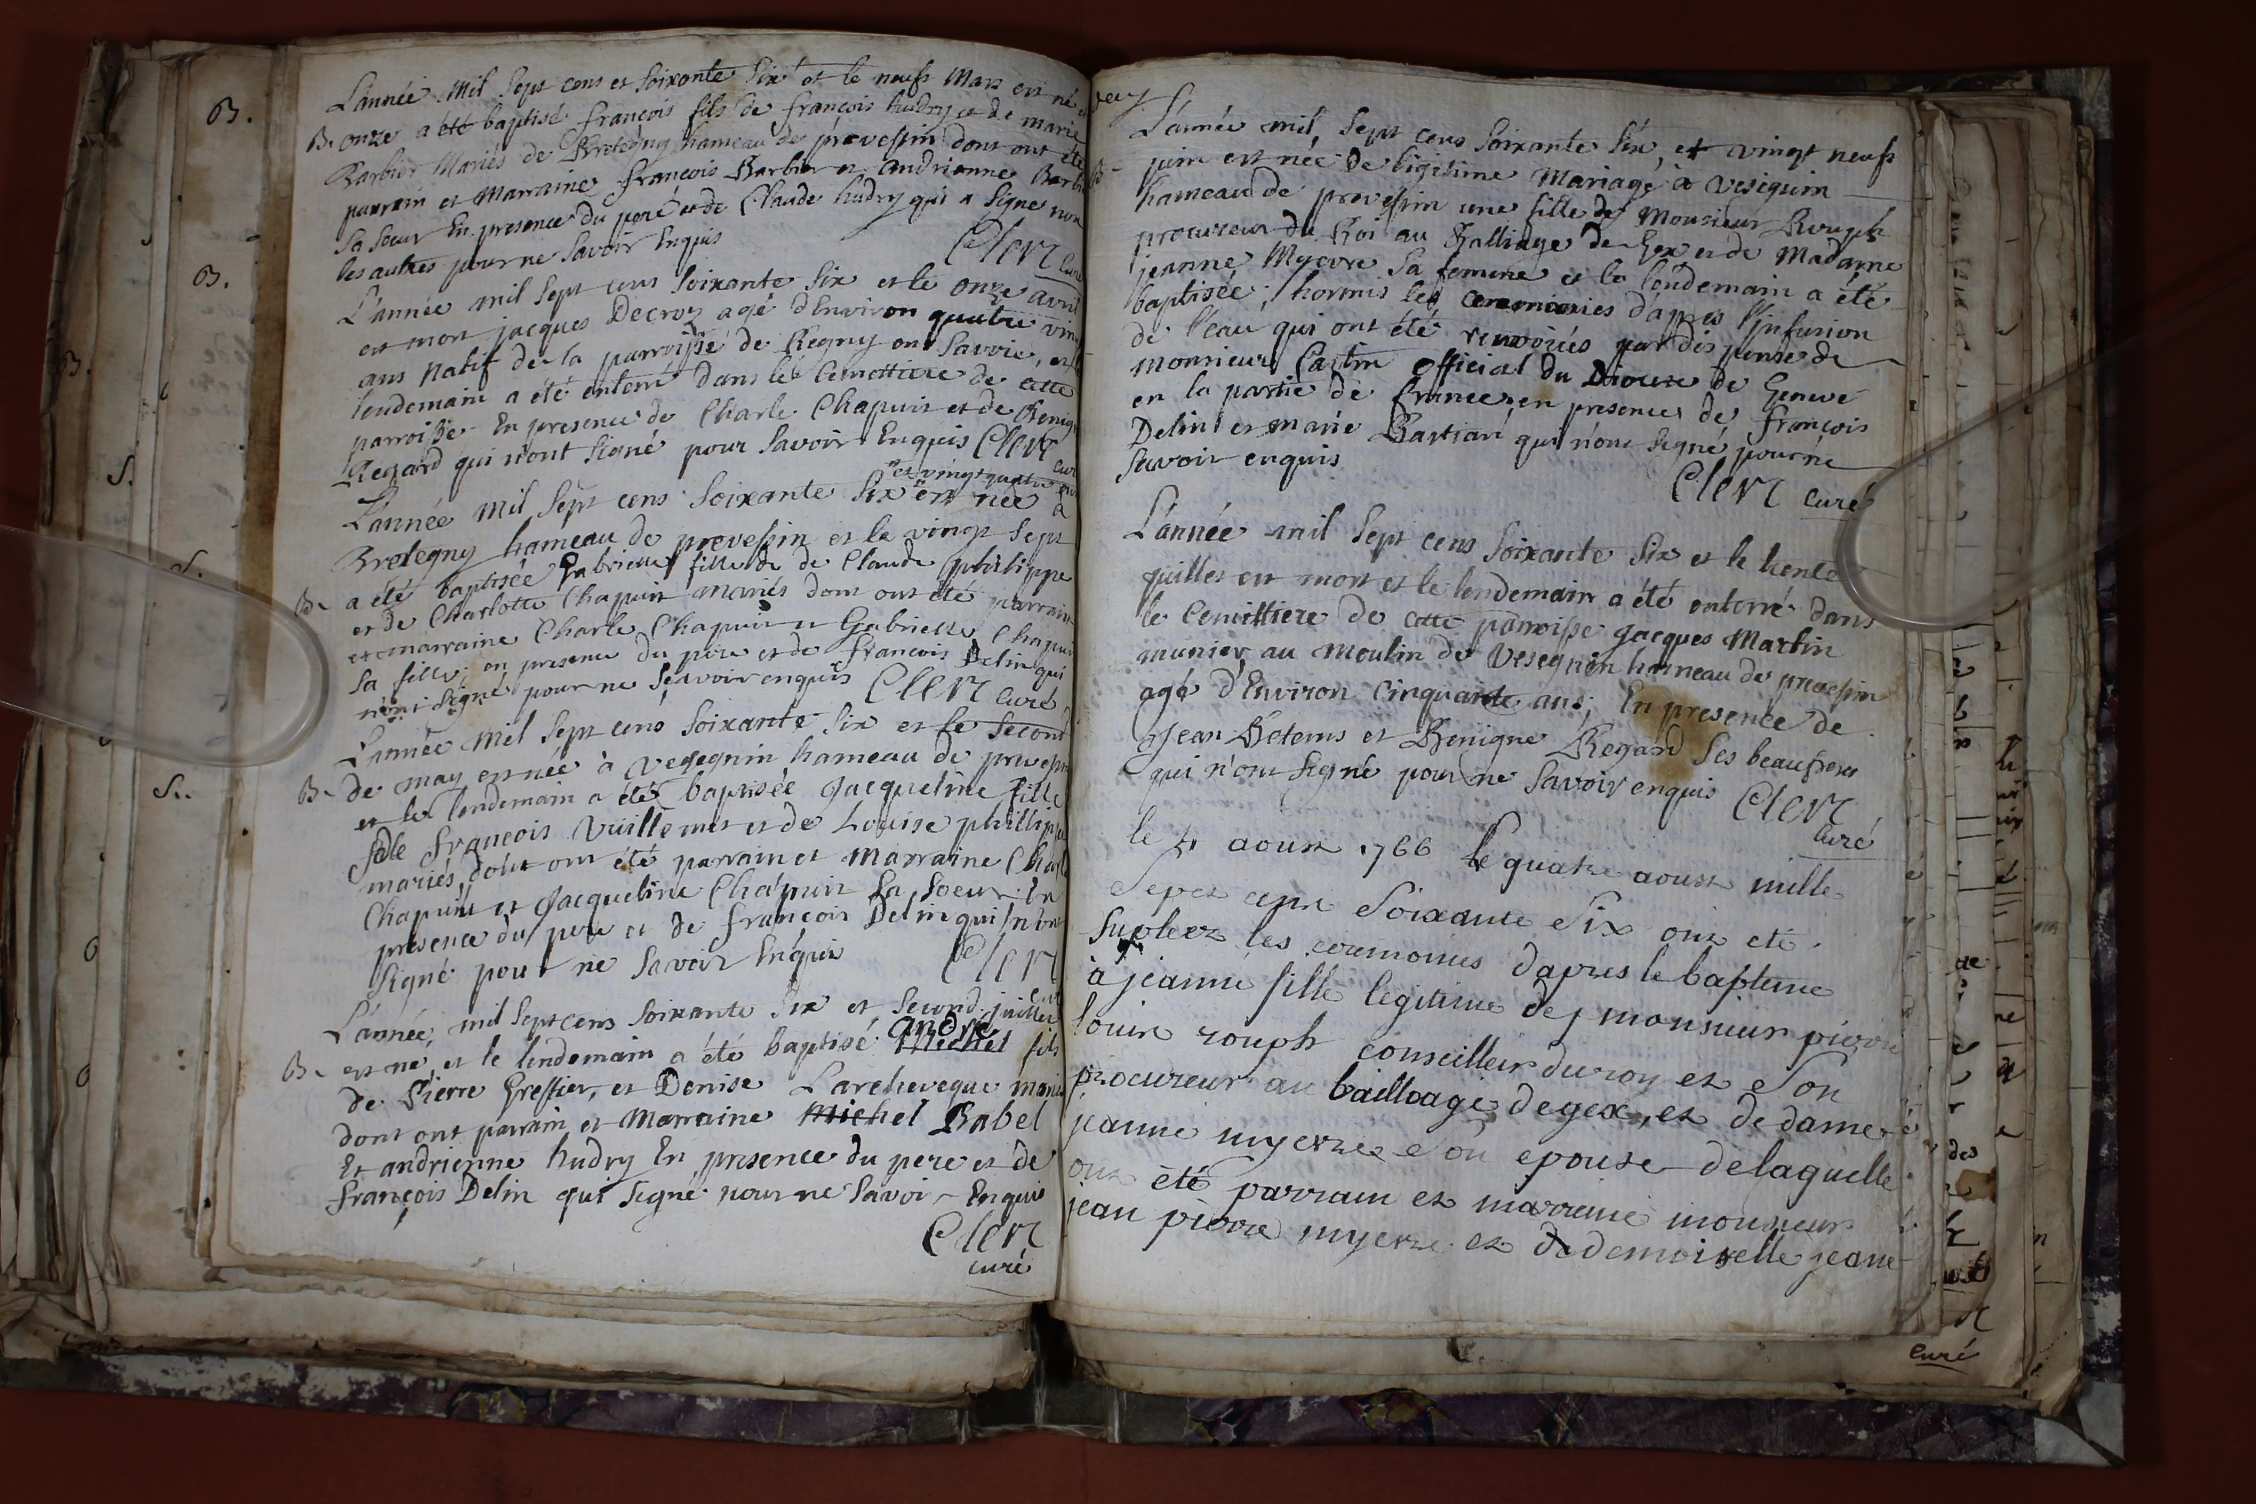 L'année mil sept cens et soixante six et le neufs Mars est né et
B. onze a été baptisé françois fils de françois hudry et de marie
Barbier Mariés de Bretegny hameau de prevessin dont ont été
parrain et Marraine françois Barbier et andrienne Barbi
sa soeur En presence du pere et de Claude hudry qui a signé non
les autres pour ne savoir Enquis
Clerc curé
L'année mil sept cens soixante six et le onze avril
est mort jacques Decroz agé d'Environ quatre vint
ans Natif de la parroisse de Regny en Savoie, et le
lendemain a été enterré dans le Cemettiere de cette
parroisse En presence de Charle Chapuis et de Benigne
Regard qui n'ont signé pour savoir Enquis Clerc
curé
et vingt quatre avril
L'année mil sept cens soixante six est née a
Bretegny hameau de prevessin et le vingt sept
B. a été baptisée Gabrielle fille de de Claude philippe
et de Charlotte Chapuis mariés dont ont été parrain
et marraine Charle Chapuis et Gabrielle Chapuis
sa fille, en presence du pere et de francois Delin qui
n'ont signé pour ne sçavoir enquis Clerc curé
L'année mil sept cens soixante six et le second
B. de may est née à vesegnin hameau de prevessin
et le lendemain a été baptisée Jacqueline fille
de francois Vuillermet et de Louise philippe
mariés, dont ont été parrain et Marraine Charle
Chapuis et Jacqueline Chapuis sa soeur. En
presence du pere et de francois Delin qui n'ont
signé pour ne savoir Enquis Clerc
curé
L'année, mil sept cens soixante six et second juillet
andré
B. est né, et le lendemain a été baptisé Michel fils
de Pierre Greffier, et Denise Larcheveque mariés
dont ont parrain et Marraine Michel Babel
Et andrienne hudry En presence du pere et de
françois Delin qui signé pour ne savoi- Enquis
Clerc
curé
L'année mil sept cens soixante six, et vingt neufs
B juin est née de ligitime Mariage à Vesegnin
hameau de prevessin une fille de Monsieur Rouph
procureur du Roi au Balliage de Gex et de Madame
jeanne Myevre sa femme et le lendemain a été
baptisée, hormis les ceremonies d'apres l'infusion
de l'eau qui ont été renvoiées par dispense de
monsieur Castin official du Diocese de Geneve
en la partie de france, en presence de françois
Delin et marie Bastian qui n'ont signé pour ne
savoir enquis
Clerc curé
L'année mil sept cens soixante six et le trente
juillet est mort et le lendemain a été enterré dans
le Cemettiere de cette parroisse jacques Martin
munier au moulin de Vesegnin hameau de prevessin
agé d'Environ Cinquante ans; En presence de
Jean Betems et Benigne Regard ses beaufreres
qui n'ont signé pour ne savoir enquis Clerc
curé
le 4 aoust 1766 Le quatre aoust mille
Sept cent Soixante Six ont eté
supleez les ceremonies d'apres le bapteme
à jeanne fille legitime de monsieur pierre
louis rouph conseiller du roy et Son
procureur au bailliage de gex, et de dame
jeanne myevre Son epouse de laquelle
ont été parrain et marreine monsieur
jean pierre myevre et de demoiselle jeane
curé